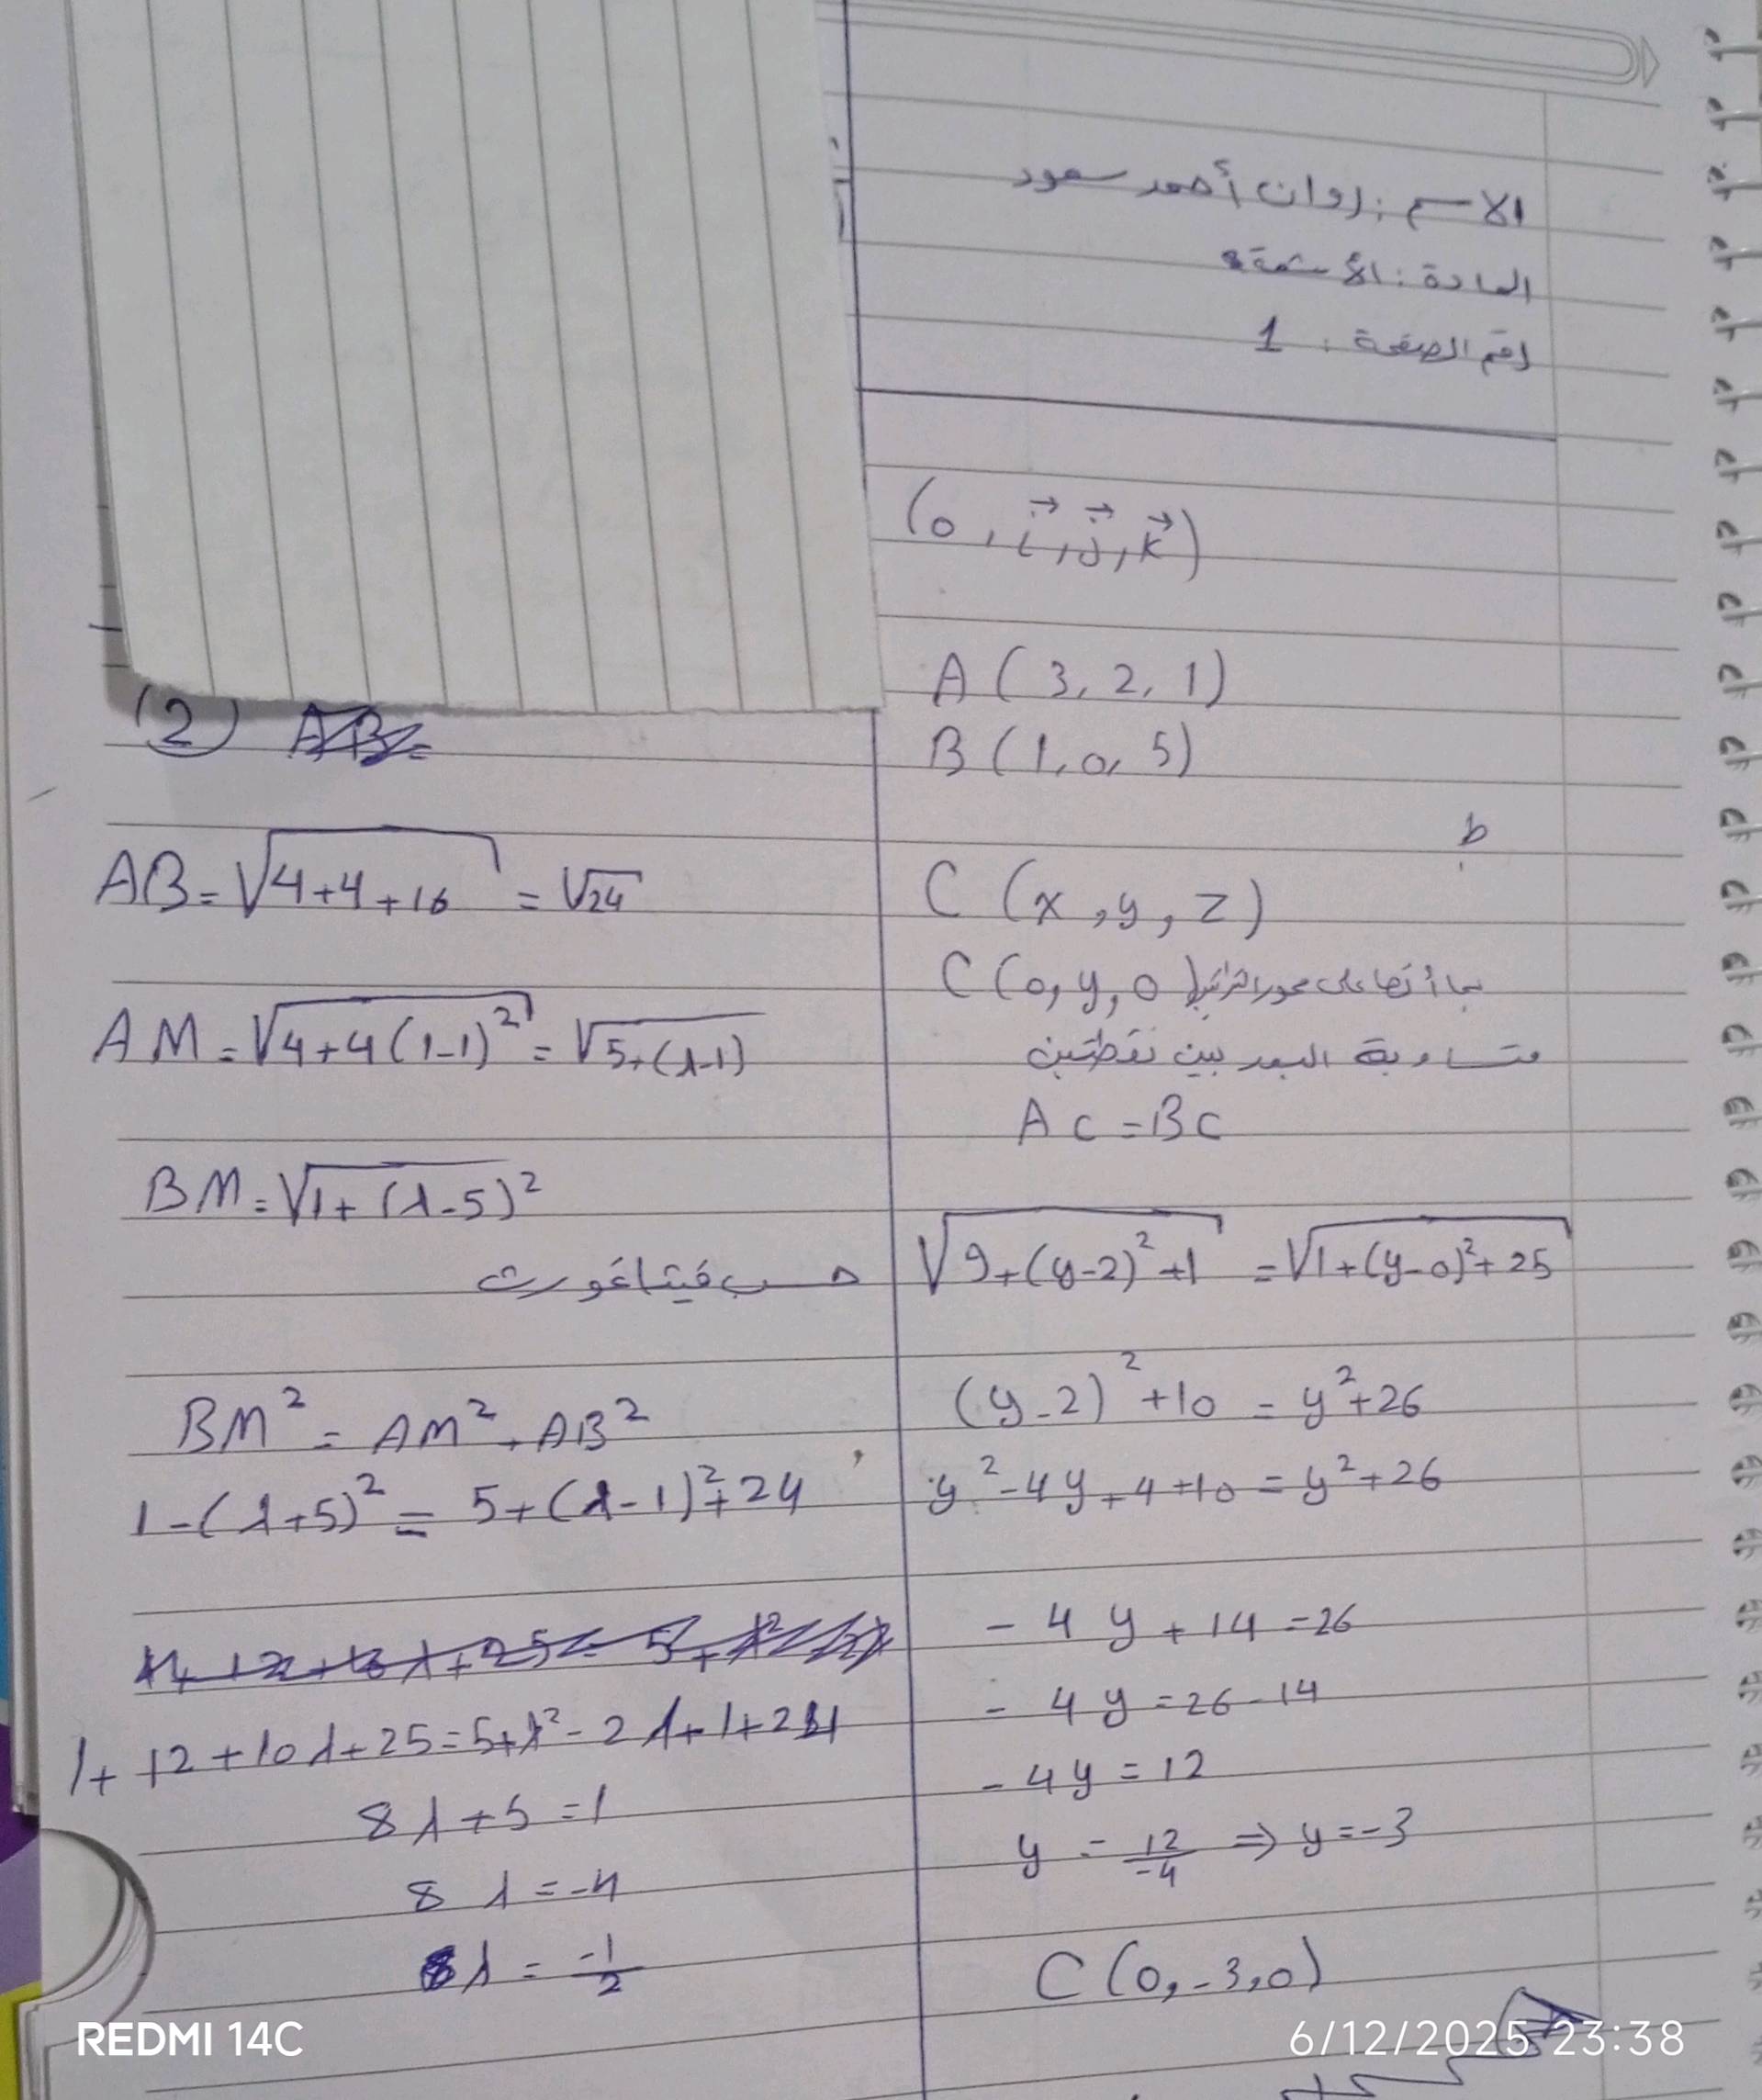 الاسم: روان أحمد سعود
المادة: الأشعة
رقم الصفحة: 1
(0, i, j, k)
A (3, 2, 1)
B (1, 0, 5)
b
C (x, y, z)
C (0, y, 0) بما أنها على محور التراتيب
متساوية البعد بين نقطتين
AC = BC
√9+(y-2)²+1 = √1+(y-0)²+25
(y-2)²+10 = y²+26
y²-4y+4+10 = y²+26
-4y+14=26
-4y=26-14
-4y=12
y = 12/-4 ⇒ y=-3
C (0, -3, 0)
(2)
AB=√4+4+16 = √24
AM=√4+4(1-1)² = √5+(λ-1)
BM=√1+(λ-5)²
حسب فيتاغورث
BM² = AM² + AB²
1-(λ+5)² = 5+(λ-1)²+24
1+12+10λ+25=5+λ²-2λ+1+24
8λ+5=1
8λ=-4
λ = -1/2
REDMI 14C
6/12/2025 23:38